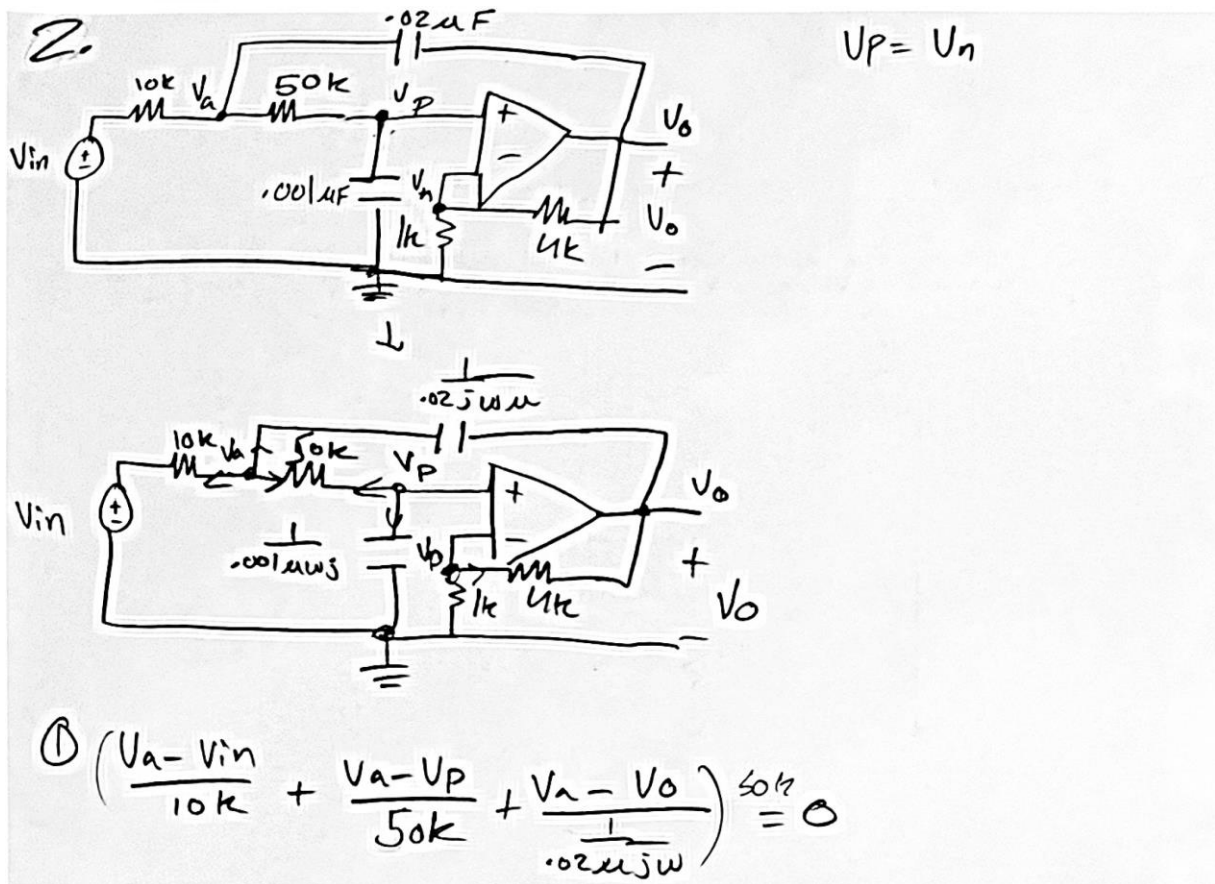 2.
.02 μF
Vp = Vn
10k Va 50k Vp
+
−
Vin
±
.001 μF
Vn
1k
4k
Vo
+
Vo
−
1
.02jωμ
10k Va 50k Vp
+
−
Vin
±
1
.001μωj
Vp
1k
4k
Vo
+
Vo
−
① (Va − Vin / 10k + Va − Vp / 50k + Va − Vo / 1 / .02μjω) 50k = 0